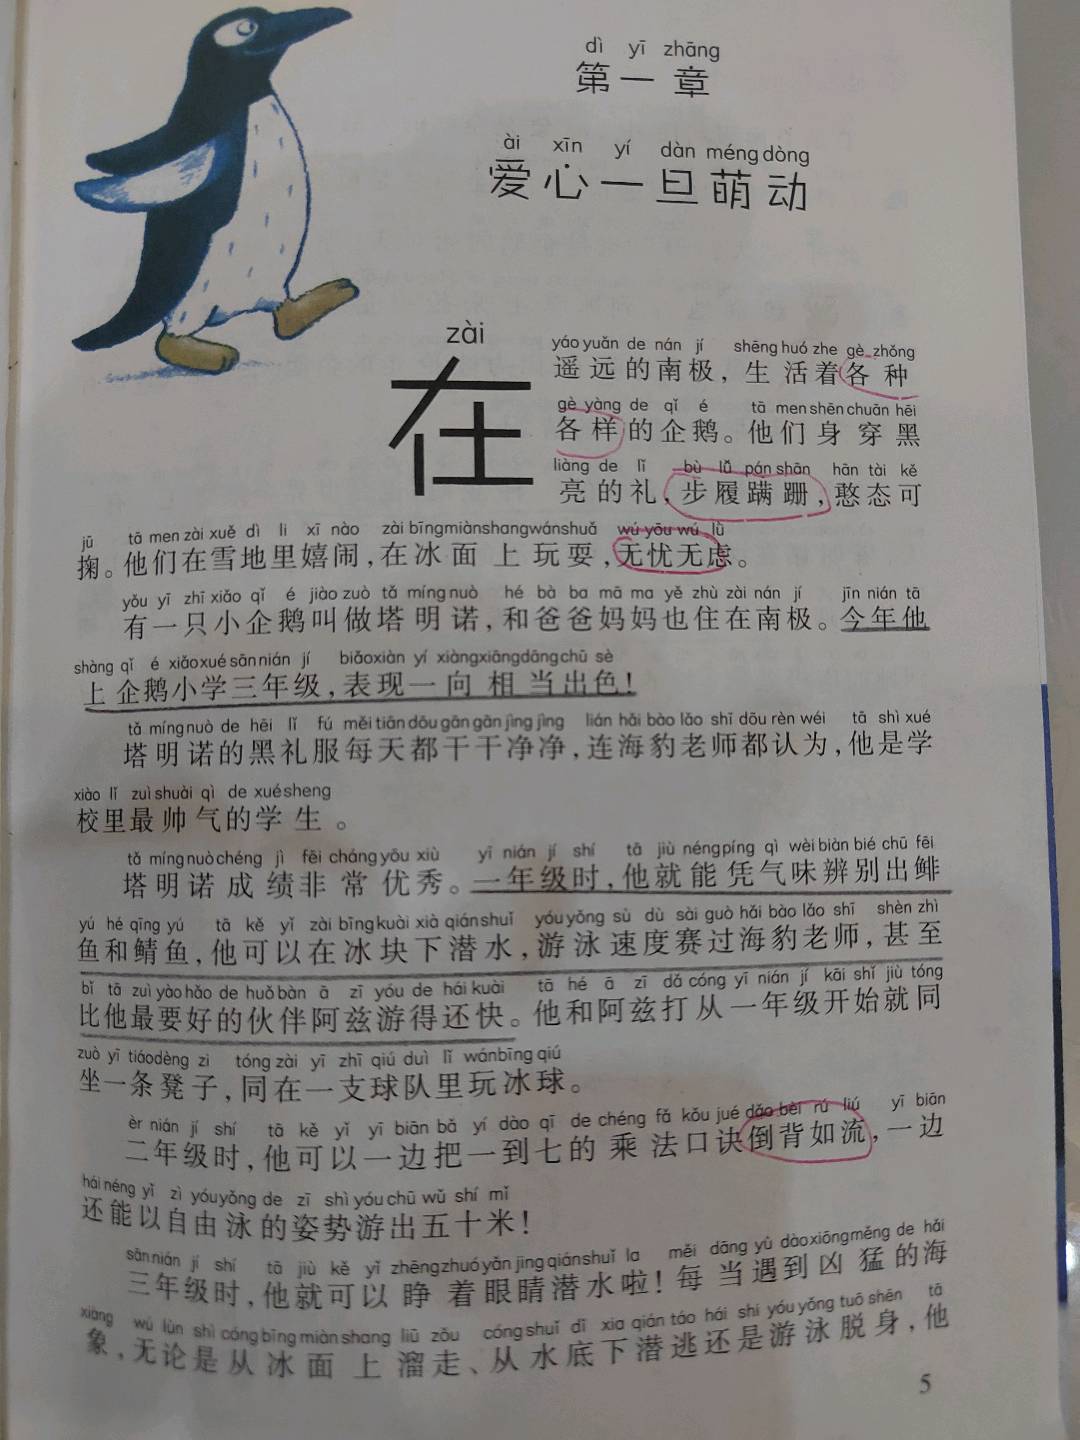 dì yī zhāng
第一章
ài xīn yí dàn méng dòng
爱心一旦萌动
zài
在
yáo yuǎn de nán jí shēng huó zhe gè zhǒng
遥远的南极，生活着各种
gè yàng de qǐ é tā men shēn chuān hēi
各样的企鹅。他们身穿黑
liàng de lǐ bù lǚ pán shān hān tài kě
亮的礼，步履蹒跚，憨态可
jū tā men zài xuě dì li xī nào zài bīng miàn shang wán shuǎ wú yōu wú lǜ
掬。他们在雪地里嬉闹，在冰面上玩耍，无忧无虑。
yǒu yī zhī xiǎo qǐ é jiào zuò tǎ míng nuò hé bà ba mā ma yě zhù zài nán jí jīn nián tā
有一只小企鹅叫做塔明诺，和爸爸妈妈也住在南极。今年他
shàng qǐ é xiǎo xué sān nián jí biǎo xiàn yí xiàng xiāng dāng chū sè
上企鹅小学三年级，表现一向相当出色！
tǎ míng nuò de hēi lǐ fú měi tiān dōu gān gān jìng jìng lián hǎi bào lǎo shī dōu rèn wéi tā shì xué
塔明诺的黑礼服每天都干干净净，连海豹老师都认为，他是学
xiào lǐ zuì shuài qì de xué sheng
校里最帅气的学生。
tǎ míng nuò chéng jì fēi cháng yōu xiù yī nián jí shí tā jiù néng píng qì wèi biàn bié chū fēi
塔明诺成绩非常优秀。一年级时，他就能凭气味辨别出鲱
yú hé qīng yú tā kě yǐ zài bīng kuài xià qián shuǐ yóu yǒng sù dù sài guò hǎi bào lǎo shī shèn zhì
鱼和鲭鱼，他可以在冰块下潜水，游泳速度赛过海豹老师，甚至
bǐ tā zuì yào hǎo de huǒ bàn ā zī yóu de hái kuài tā hé ā zī dǎ cóng yī nián jí kāi shǐ jiù tóng
比他最要好的伙伴阿兹游得还快。他和阿兹打从一年级开始就同
zuò yī tiáo dèng zi tóng zài yī zhī qiú duì lǐ wán bīng qiú
坐一条凳子，同在一支球队里玩冰球。
èr nián jí shí tā kě yǐ yī biān bǎ yí dào qī de chéng fǎ kǒu jué dào bèi rú liú yī biān
二年级时，他可以一边把一到七的乘法口诀倒背如流，一边
hái néng yǐ zì yóu yǒng de zī shì yóu chū wǔ shí mǐ
还能以自由泳的姿势游出五十米！
sān nián jí shí tā jiù kě yǐ zhēng zhuó yǎn jing qián shuǐ la měi dāng yù dào xiōng měng de hǎi
三年级时，他就可以睁着眼睛潜水啦！每当遇到凶猛的海
xiàng wú lùn shì cóng bīng miàn shang liū zǒu cóng shuǐ dǐ xia qián táo hái shi yóu yǒng tuō shēn tā
象，无论是从冰面上溜走、从水底下潜逃还是游泳脱身，他
5